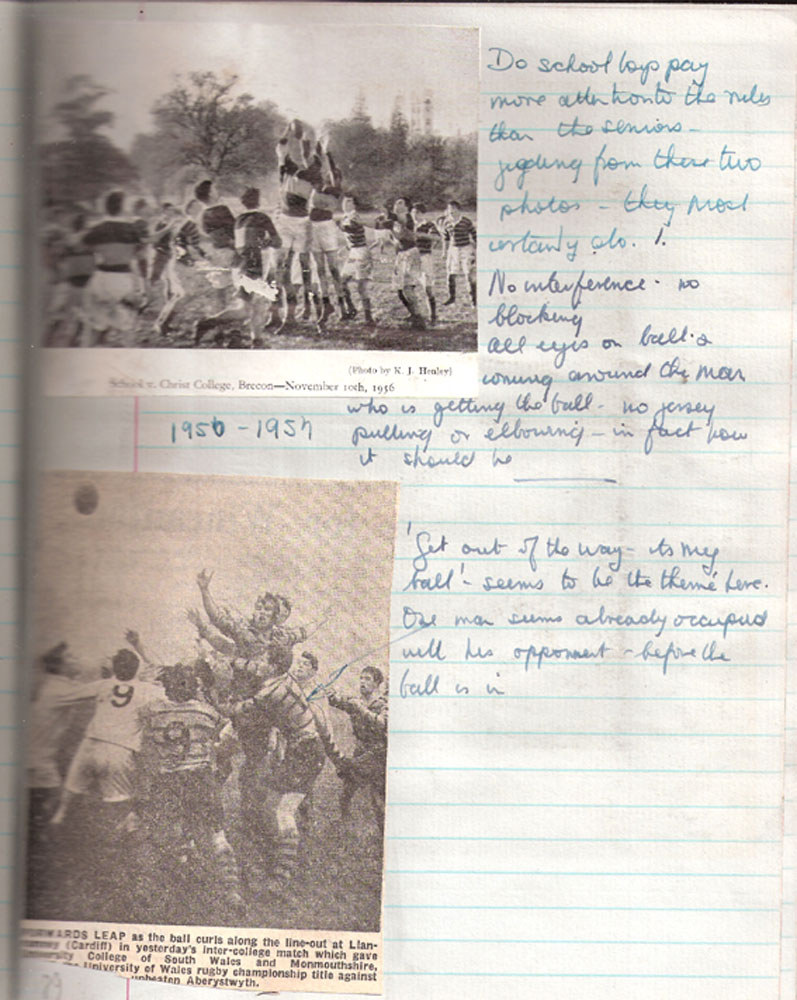 Do school boys pay
more attention to the rules
than the seniors -
judging from these two
photos - they most
certainly do. !.
No interference - no
blocking
all eyes on ball &
coming around the man
who is getting the ball - no jersey
pulling or elbowing - in fact how
it should be
(Photo by K. J. Henley)
School v. Christ College, Brecon—November 10th, 1956
1956 - 1957
'Get out of the way - its my
ball' - seems to be the theme here.
One man seems already occupied
with his opponent - before the
ball is in
9
9
FORWARDS LEAP as the ball curls along the line-out at Llan-
(Cardiff) in yesterday's inter-college match which gave
University College of South Wales and Monmouthshire,
the University of Wales rugby championship title against
unbeaten Aberystwyth.